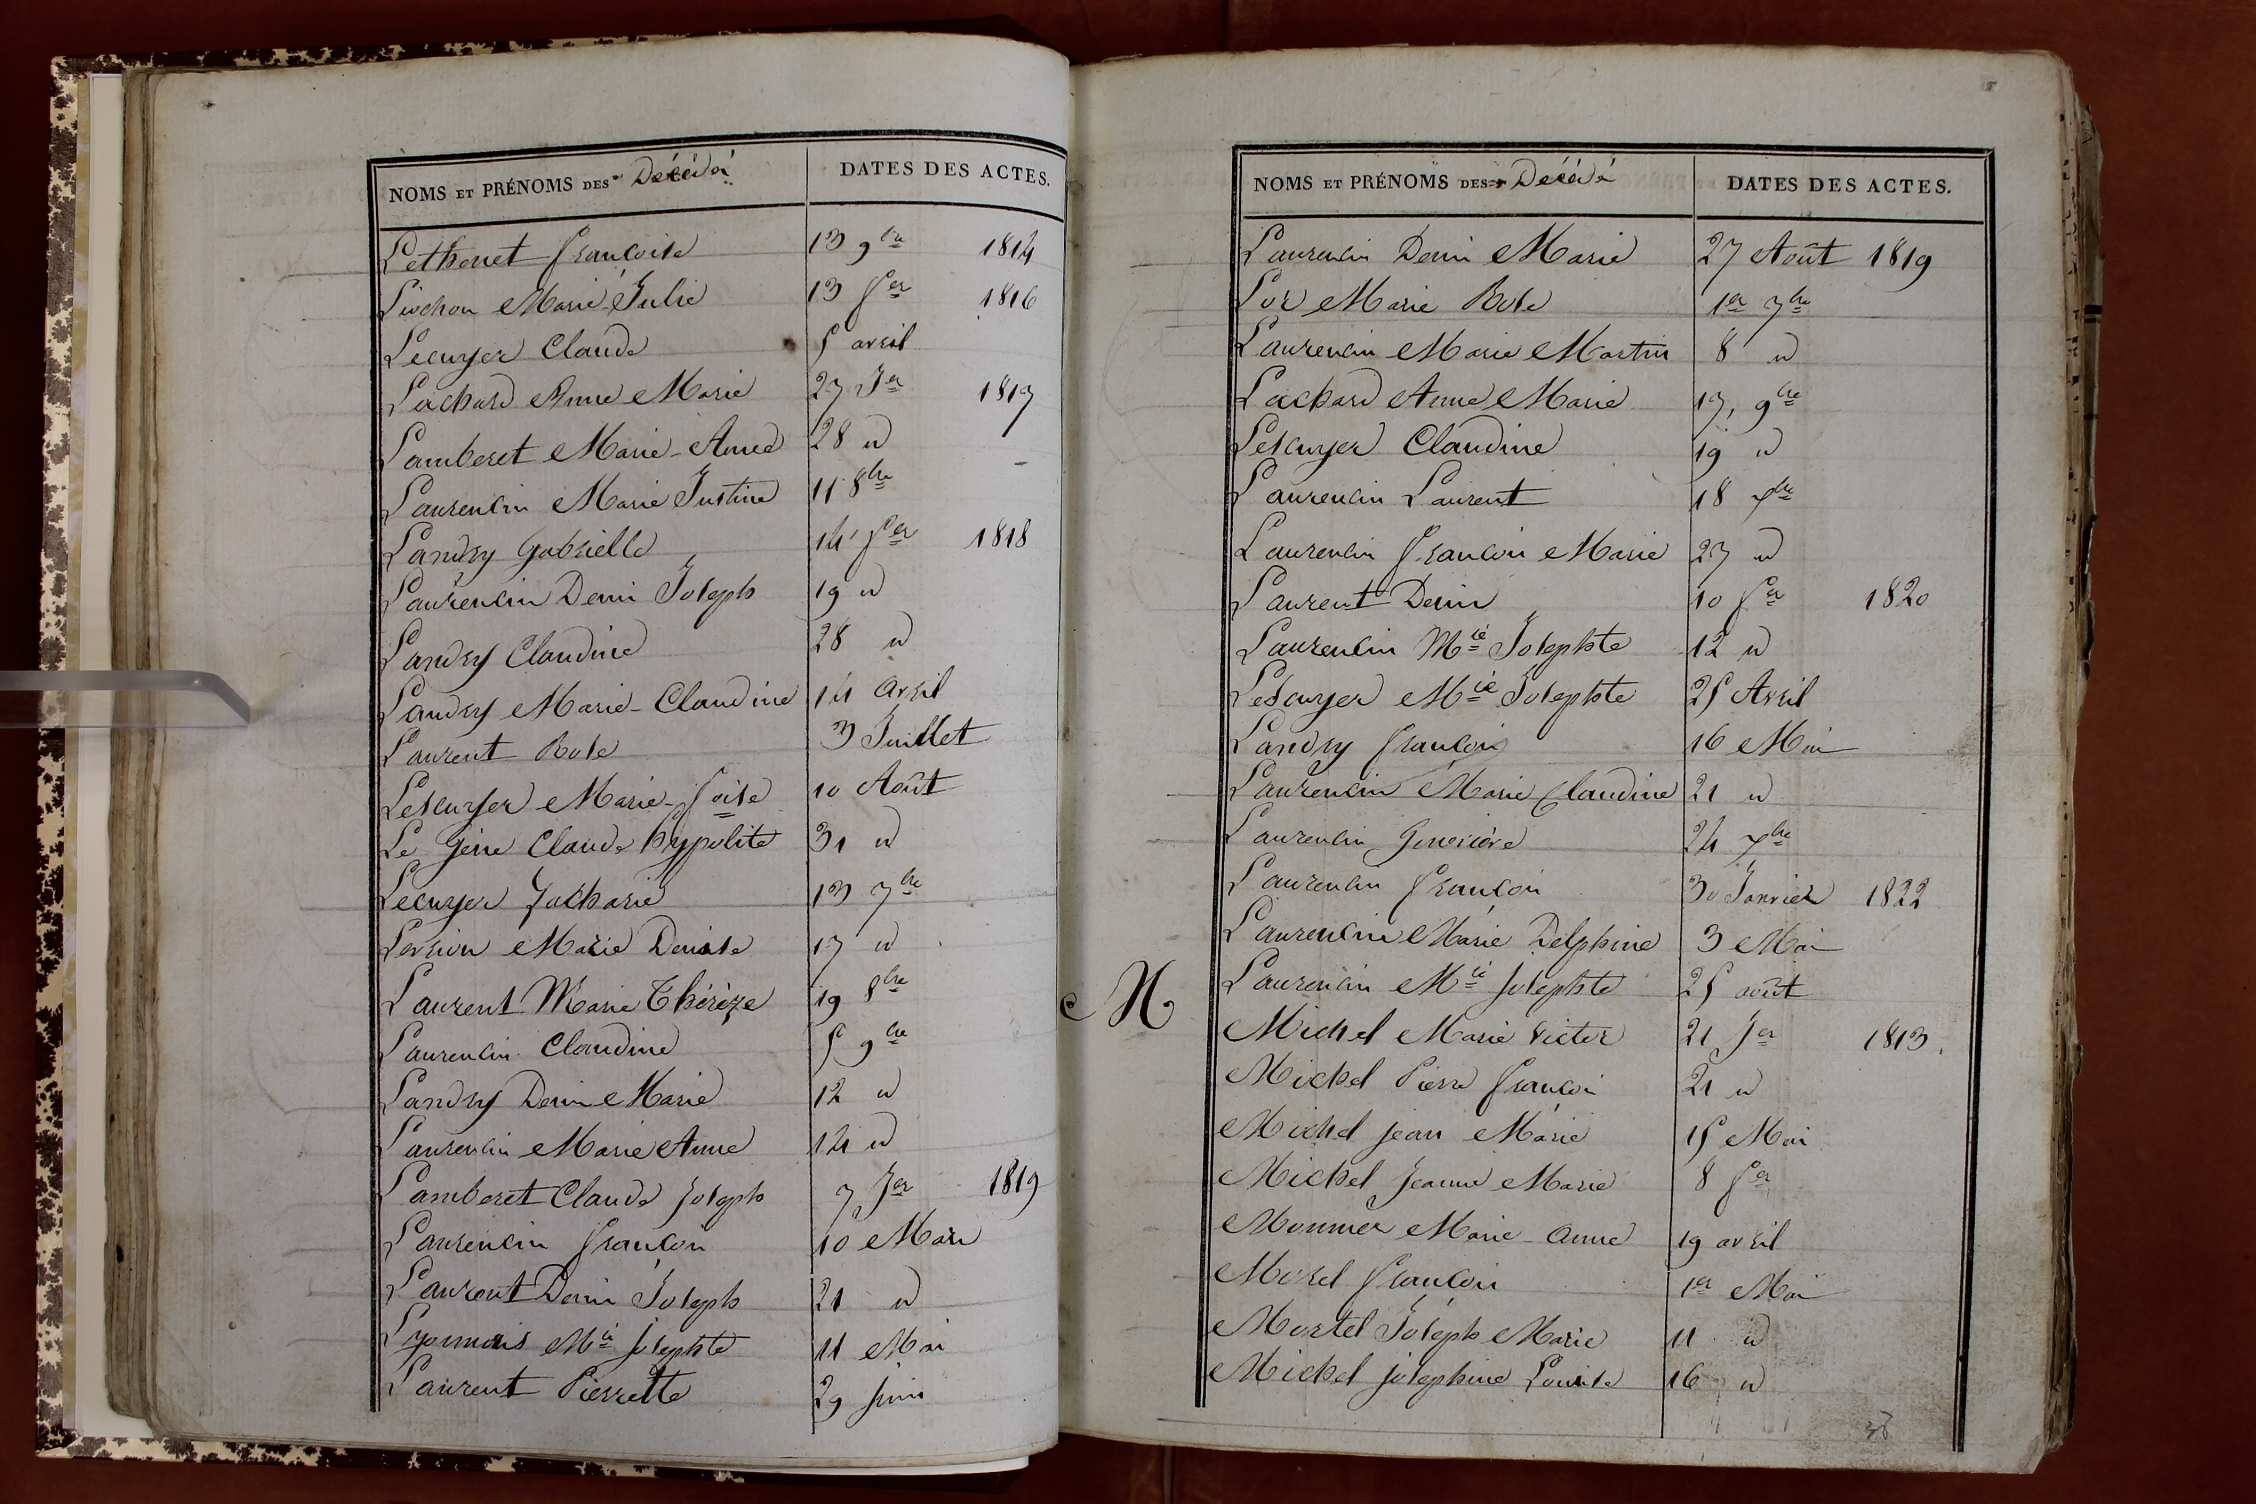 NOMS ET PRÉNOMS DES Décédés DATES DES ACTES.
Lethenet Françoise 13 9bre 1814
Livchon Marie Julie 13 fer 1816
Lecuyer Claude 5 avril
Lachard Anne Marie 27 Jer 1817
Lamberet Marie-Anne 28 "
Laurencin Marie Justine 11 8bre
Landry Gabrielle 14 fer 1818
Laurencin Denis Joseph 19 "
Landry Claudine 28 "
Landry Marie-Claudine 14 avril
Laurent Rose 3 Juillet
Lescuyer Marie-foise 10 Août
Le Claude hypolite 31 "
Lecuyer Zacharie 13 7bre
Marie Denise 17 "
Laurent Marie Thérèze 19 8bre
Laurencin Claudine 5 9bre
Landry Denis Marie 12 "
Laurencin Marie Anne 14 "
Lamberet Claude Joseph 7 Jer 1819
Laurencin François 10 Mars
Laurent Denis Joseph 21 "
Lyonnais Mie Josephte 11 Mai
Laurent Pierrette 29 juin
NOMS ET PRÉNOMS DES Décédés DATES DES ACTES.
Laurencin Denis Marie 27 Août 1819
Lor Marie Rose 1er 7bre
Laurencin Marie Martin 8 "
Lachard Anne Marie 17, 9bre
Lescuyer Claudine 19 "
Laurencin Laurent 18 Xbre
Laurencin François Marie 27 "
Laurent Denis 10 fer 1820
Laurencin Mie Josephte 12 "
Lescuyer Mie Josephte 25 Avril
Landry François 16 Mai
Laurencin Marie Claudine 21 "
Laurencin Geneviève 24 Xbre
Laurencin François 30 Janvier 1822
Laurencin Marie Delphine 3 Mai
Laurencin Mie Josephte 25 août
M
Michel Marie Victor 21 Jer 1813.
Michel Pierre François 21 "
Michel jean Marie 15 Mai
Michel Jeanne Marie 8 fer
Monnier Marie-anne 19 avril
Morel François 1er Mai
Mortel Joseph Marie 11 "
Michel josephine Louise 16 "